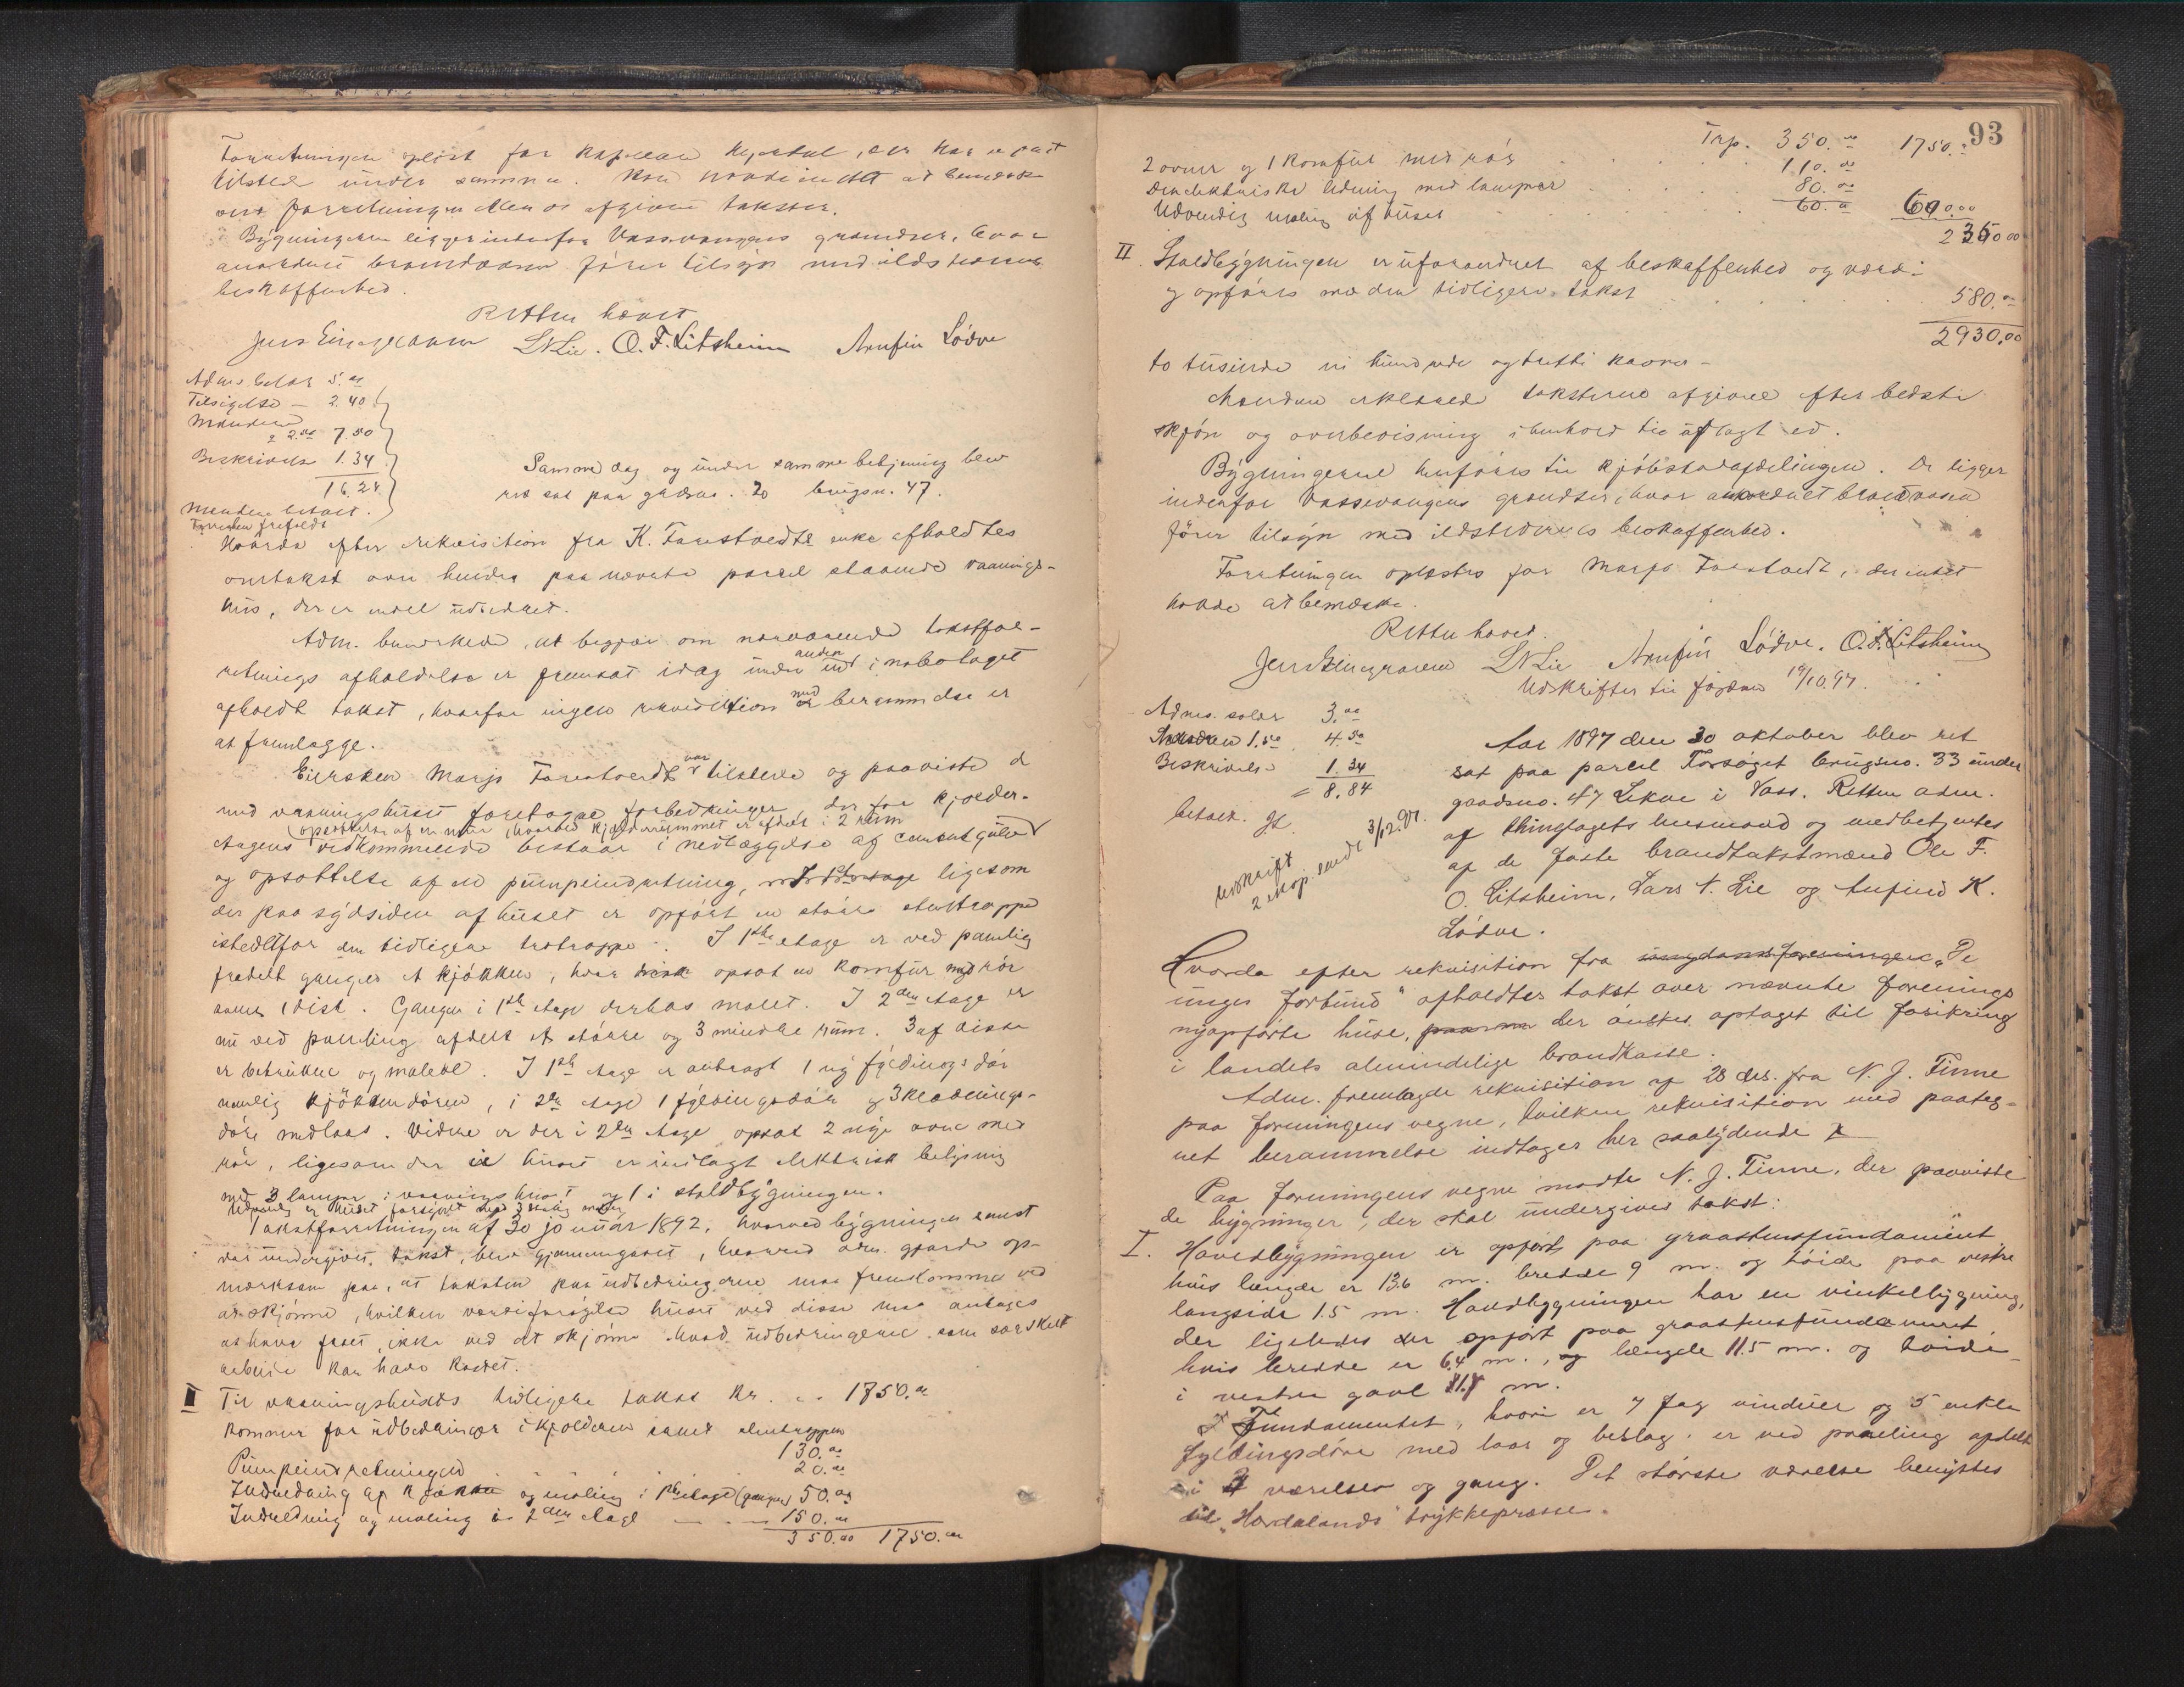 Forretningen oplæst for kaptein Kjerstul, der har vært
tilstede under samme. Han havde intet at bemærke
ved forretningen eller de afgivne takster.
Bygningerne ligger indenfor Vossevangens grændser, hvor
anordnet brandvæsen fører tilsyn med ildstedernes
beskaffenhed.
Retten hævet
Jens Gjerager LNLie. O. F. Litsheim Arnfin Lödve
Adms. salær 5.00
Tilsigelse – 2.40
Mændene
a 2.50 7.50
Beskrivelse 1.34
16.24
Mændene betalt.
Samme dag og under samme betjening blev
ret sat paa gaardsno. 20 brugsn. 47.
Hvorda efter rekvisition fra K. Farestvedts enke afholdtes
omtakst over hendes paa nævnte parcel staaende vaanings-
hus, der er endel udbedret.
Adm. bemærkede, at begjær om nærværende takstfor-
retnings afholdelse er fremsat idag under anden i nabolaget
afholdt takst, hvorfor ingen rekvisition med berammelse er
at fremlægge.
Eiersken Marjo Farestvedt var tilstede og paaviste de
ved vaaningshuset foretagne forbedringer, der for kjælder-
(opsættelse af en mur, hvorved kjælderrummet er afdelt i 2 rum
etagens vedkommende bestaar i nedlæggelse af cementgulv
og opsættelse af en pumpeindretning, ligesom
der paa sydsiden af huset er opført en større stentrappe
istedetfor den tidligere trætrappe. I 1ste etage er ved panling
fradelt gangen et kjøkken, hvor opsat en komfur med rør
samt 1 disk. Gangen i 1ste etage derhos malet. I 2den etage er
nu ved panling afdelt et større og 3 mindre rum. 3 af disse
er betrukne og malede. I 1ste etage er anbragt 1 ny fyldingsdør
nemlig kjøkkendøren, i 2den etage 1 fyldingsdør og 3 klædnings-
døre med laas. Videre er der i 2den etage opsat 2 nye ovne med
rør, ligesom der i huset er indlagt elektrisk belysning
med 3 lamper i vaaningshuset og 1 i staldbygningen.
Udvendig er huset forsynet med 3 strøg maling
Takstforretningen af 30 januar 1892, hvorved bygningen senest
var undergivet takst, blev gjennemgaaet, hvorved adm. gjorde op-
mærksom paa, at taksten paa udbedringerne maa fremkomme ved
at skjønne, hvilken værdiforøgelse huset ved disse maa antages
at have faaet, ikke ved at skjønne hvad udbedringerne som særskilt
arbeide kan have kostet.
I Til vaaningshusets tidligere takst kr. .. 1750.00
kommer for udbedringer i kjælderen samt stentrappen
130.00
Pumpeindretningen 20.00
Indredning af kjøkken og maling i 1ste etage (gangen) 50.00
Indredning og maling i 2den etage 150.00
350.00 1750.00
93
Trp. 350.00 1750.00
2 ovner og 1 komfur med rør 110.00
den elektriske ledning med lamper 80.00
Udvendig maling af huset 60.00 600.00
2350.00
II. Staldbygningen er uforandret af beskaffenhed og værdi
og opføres med den tidligere takst 580.00
2930.00
to tusinde ni hundrede og tretti kroner –
Mændene erklærede taksterne afgivne efter bedste
skjøn og overbevisning i henhold til aflagt ed.
Bygningerne henføres til kjøbstadafdelingen. De ligger
indenfor Vossevangens grændser, hvor anordnet brandvæsen
fører tilsyn med ildstedernes beskaffenhed.
Forretningen oplæstes for Marjo Farestvedt, der intet
havde at bemærke.
Retten hævet.
Jens Gjerager LNLie Arnfin Lödve. O. F. Litsheim
Udskrifter til fogden 19/10.97.
Adms. salær 3.00
Mændene 1.50 4.50
Beskrivelse 1.34
= 8.84
betalt.
Udskrift
2 exp. sendt 3/12.97.
Aar 1897 den 30 oktober blev ret
sat paa parcel Forsøget brugsno. 33 under
gaardsno. 47 Lekve i Voss. Retten adm.
af thinglagets lensmand og medbetjentes
af de faste brandtakstmænd Ole F.
O. Litsheim, Lars N. Lie og Anfind K.
Lødve.
Hvorda efter rekvisition fra ungdomsforeningen „De
unges forbund" afholdtes takst over nævnte forenings
nyopførte huse, der ønskes optaget til forsikring
i landets almindelige brandkasse.
Adm. fremlagde rekvisition af 28 ds. fra N. J. Finne
paa foreningens vegne, hvilken rekvisition med paateg-
net berammelse indtages her saalydende
Paa foreningens vegne mødte N. J. Finne, der paaviste
de bygninger, der skal undergives takst:
I. Hovedbygningen er opført paa graastensfundament,
hvis længde er 13.6 m. bredde 9 m. og høide paa vestre
langside 1.5 m. Hovedbygningen har en vinkelbygning,
der ligeledes er opført paa graastensfundament,
hvis bredde er 6.4 m., og længde 11.5 m. og høide
i vestre gavl 1.8 m.
I Fundamentet, hvori er 7 fag vinduer og 5 enkle
fyldingsdøre med laas og beslag, er ved paneling afdelt
i 4 værelser og gang. Det største værelse benyttes
til „Hordalands" trykkepresse.